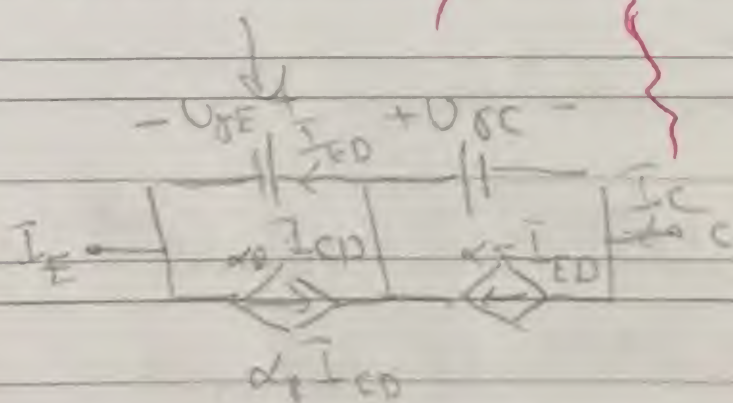 - U_γE + I_ED + U_γC -
I_E α_R I_CD α_F I_ED I_C C
α_R I_CD